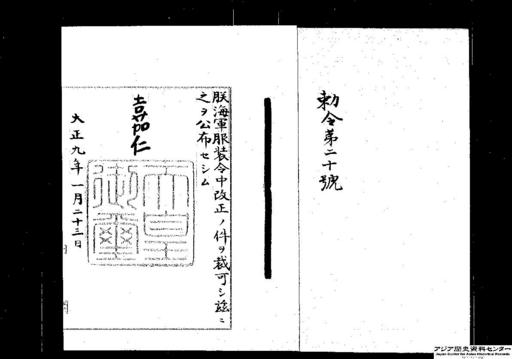 勅令第二十號
朕海軍服装令中改正ノ件ヲ裁可シ茲ニ
之ヲ公布セシム
嘉仁
天皇御璽
大正九年一月二十三日
アジア歴史資料センター
Japan Center for Asian Historical Records